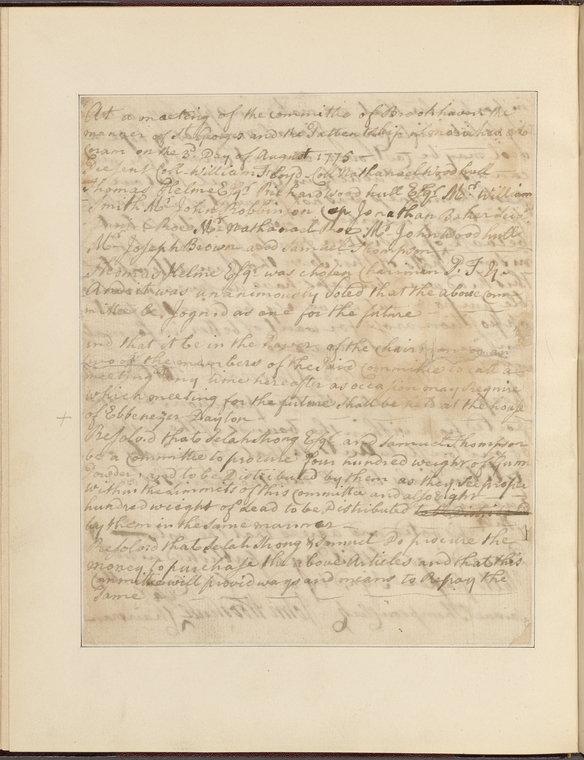 At a maeting of the committie of Brookhaven the
manner of St Georges and the Patten
Coram on the 3d Day of August 1775
Present Coll William Floyd Coll Nathanael Woodhull
Thomas Helme Esqr Richard Woodhull Esqr Mr William
Smith Mr John Robbinson Cap Jonathan Baker
Mr Nathanael Roe Mr John Woodhull
Mr Joseph Brown and Samuel Thompson
Thomas Helme Esqr was chosen Chairman
And it was unanimously voted that the above com
mittee be Joynd as one for the future
and that it be in the Power of the chairman or
two of the members of the said committie to call a
meeting any time hereafter as occation may require
which meeting for the future shall be held at the house
of Ebbenezer Dayton
Resolvid that Selah Strong Esqr and Samuel Thompson
be a committee to procure four hundred weight of Gunn
Powder and to be Distributed by them as they see proper
within the limmets of this committee and also eight
hundred weight of Lead to be Distributed
by them in the same manner
Resolvid that Selah Strong & Samuel Do procure the
money to purchase the above Articles and that this
Committee will provid ways and means to Repay the
Same